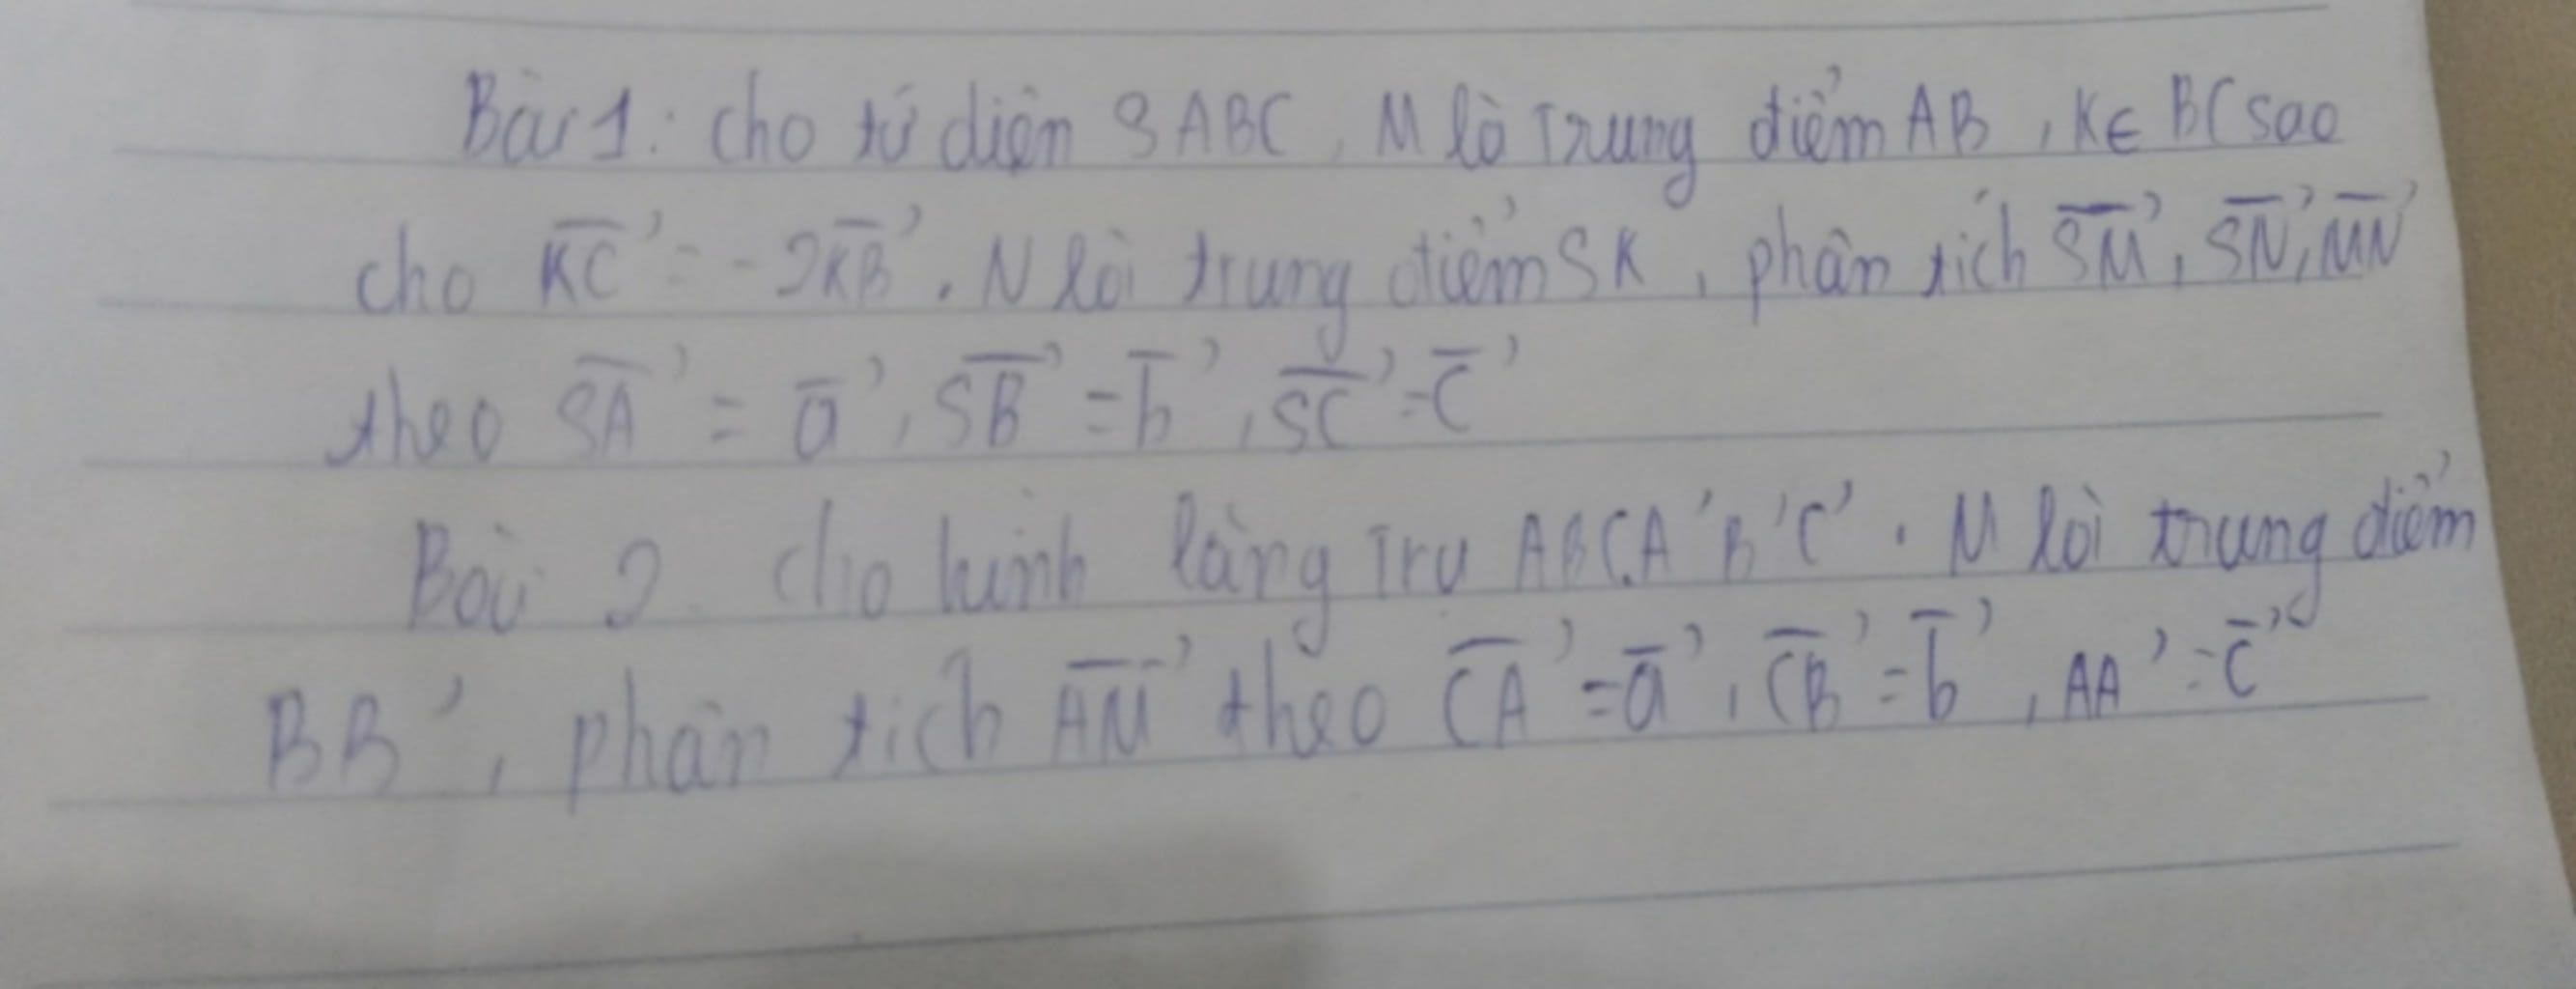 Bài 1: cho tứ diện SABC, M là trung điểm AB, K∈ BC sao
cho \overrightarrow{KC} = -2\overrightarrow{KB}. N là trung điểm SK, phân tích \overrightarrow{SM}, \overrightarrow{SN}, \overrightarrow{MN}
theo \overrightarrow{SA} = \overrightarrow{a}, \overrightarrow{SB} = \overrightarrow{b}, \overrightarrow{SC} = \overrightarrow{c}
Bài 2. cho hình lăng trụ ABC.A'B'C'. M là trung điểm
BB', phân tích \overrightarrow{AM} theo \overrightarrow{CA} = \overrightarrow{a}, \overrightarrow{CB} = \overrightarrow{b}, AA' = \overrightarrow{c}